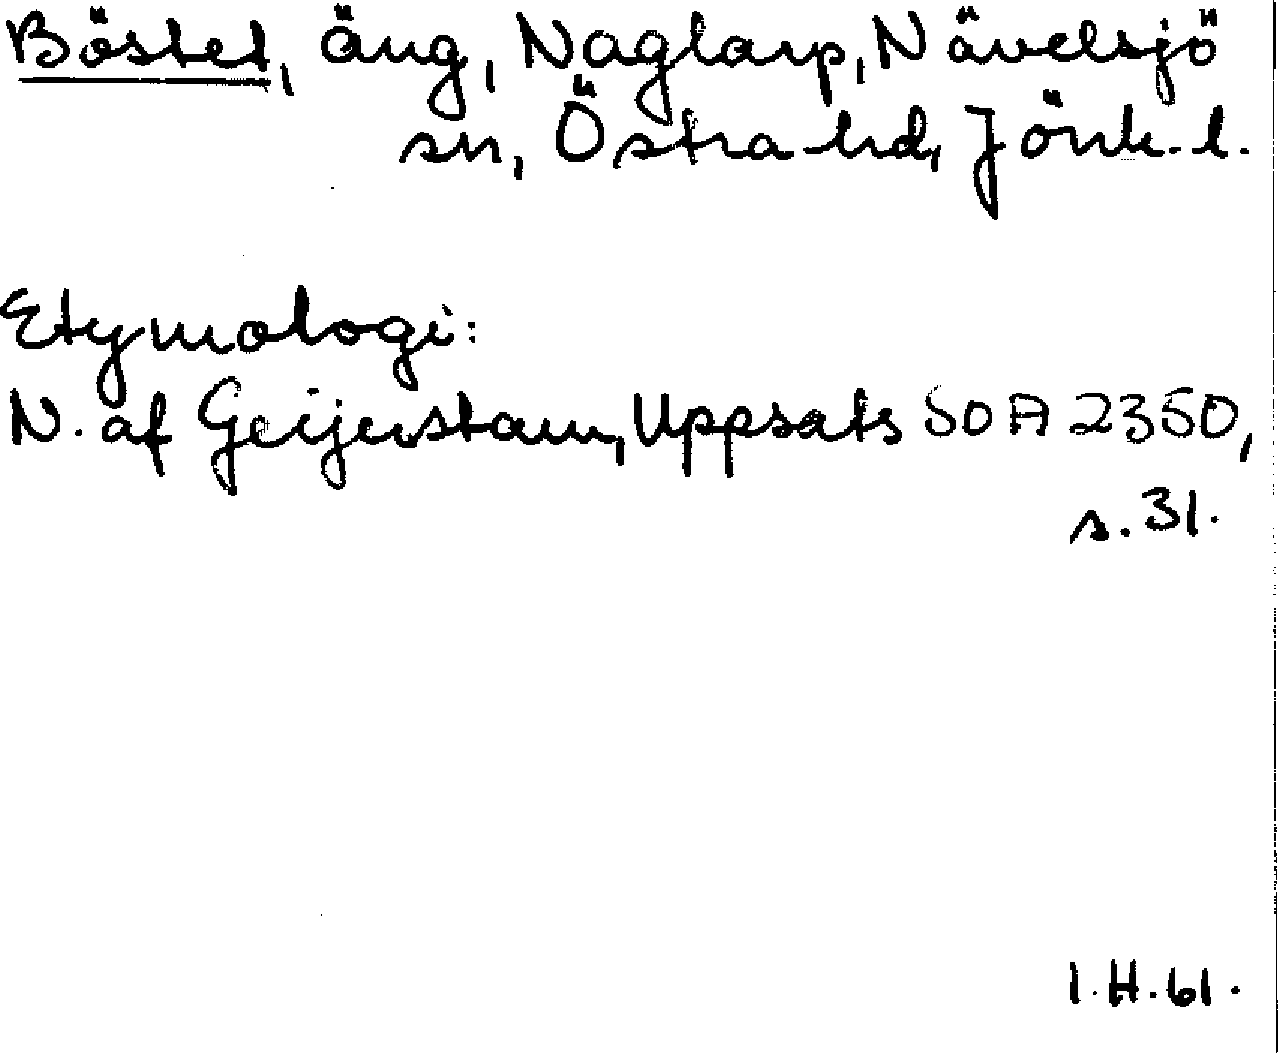 Böstet, äng, Naglarp, Nävelsjö
sn, Östra hd, Jönk. l.
Etymologi:
N. af Geijerstam, Uppsats SOA 2350,
s. 31.
I.H. 61.